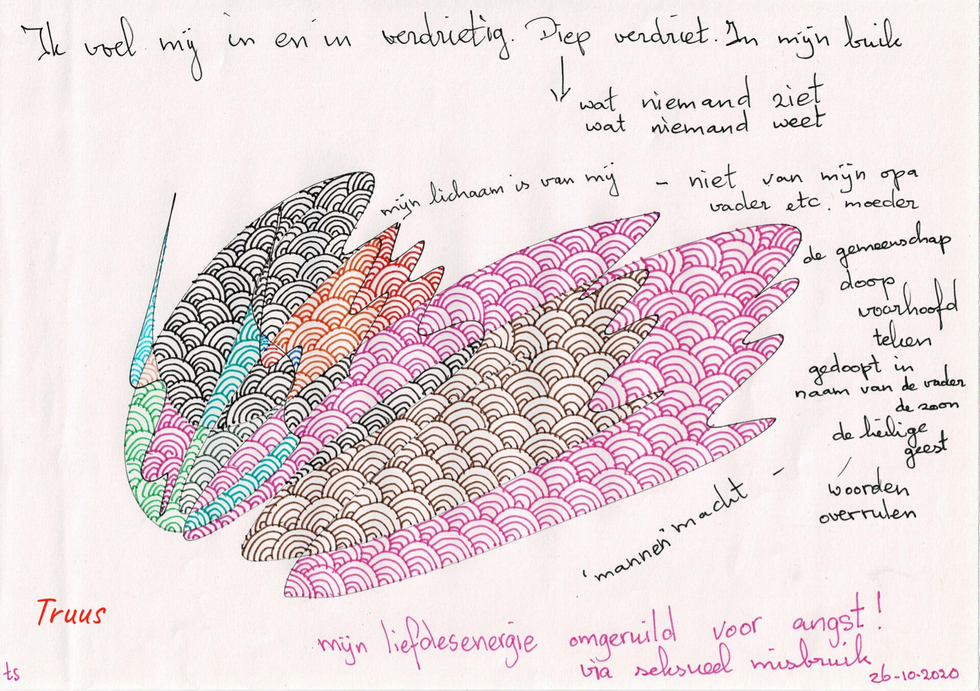 Ik voel mij in en in verdrietig. Diep verdriet. In mijn buik
wat niemand ziet
wat niemand weet
mijn lichaam is van mij - niet van mijn opa
vader etc. moeder
de gemeenschap
doop
voorhoofd
teken
gedoopt in
naam van de vader
de zoon
de heilige
geest
woorden
overrulen
'mannen'macht -
Truus
mijn liefdesenergie omgeruild voor angst!
via seksueel misbruik
ts
26-10-2020